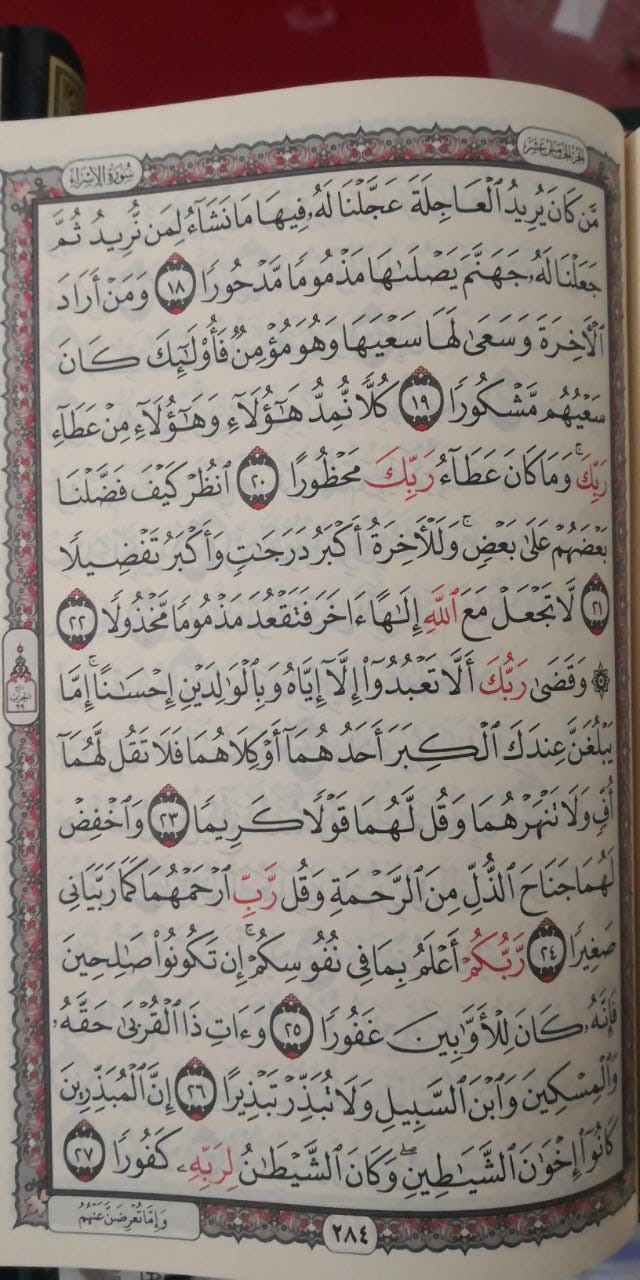 سُورَةُ الإِسْرَاءِ
الجُزْءُ الخَامِسَ عَشَرَ
مَّن كَانَ يُرِيدُ ٱلْعَاجِلَةَ عَجَّلْنَا لَهُۥ فِيهَا مَا نَشَآءُ لِمَن نُّرِيدُ ثُمَّ
جَعَلْنَا لَهُۥ جَهَنَّمَ يَصْلَىٰهَا مَذْمُومًا مَّدْحُورًا ١٨ وَمَنْ أَرَادَ
ٱلْأَخِرَةَ وَسَعَىٰ لَهَا سَعْيَهَا وَهُوَ مُؤْمِنٌ فَأُو۟لَٰٓئِكَ كَانَ
سَعْيُهُم مَّشْكُورًا ١٩ كُلًّا نُّمِدُّ هَٰٓؤُلَآءِ وَهَٰٓؤُلَآءِ مِنْ عَطَآءِ
رَبِّكَ ۚ وَمَا كَانَ عَطَآءُ رَبِّكَ مَحْظُورًا ٢٠ ٱنظُرْ كَيْفَ فَضَّلْنَا
بَعْضَهُمْ عَلَىٰ بَعْضٍ ۚ وَلَلْأَخِرَةُ أَكْبَرُ دَرَجَٰتٍ وَأَكْبَرُ تَفْضِيلًا
٢١ لَّا تَجْعَلْ مَعَ ٱللَّهِ إِلَٰهًا ءَاخَرَ فَتَقْعُدَ مَذْمُومًا مَّخْذُولًا ٢٢
۞ وَقَضَىٰ رَبُّكَ أَلَّا تَعْبُدُوٓا۟ إِلَّآ إِيَّاهُ وَبِٱلْوَٰلِدَيْنِ إِحْسَٰنًا ۚ إِمَّا
يَبْلُغَنَّ عِندَكَ ٱلْكِبَرَ أَحَدُهُمَآ أَوْ كِلَاهُمَا فَلَا تَقُل لَّهُمَآ
أُفٍّ وَلَا تَنْهَرْهُمَا وَقُل لَّهُمَا قَوْلًا كَرِيمًا ٢٣ وَٱخْفِضْ
لَهُمَا جَنَاحَ ٱلذُّلِّ مِنَ ٱلرَّحْمَةِ وَقُل رَّبِّ ٱرْحَمْهُمَا كَمَا رَبَّيَانِى
صَغِيرًا ٢٤ رَّبُّكُمْ أَعْلَمُ بِمَا فِى نُفُوسِكُمْ ۚ إِن تَكُونُوا۟ صَٰلِحِينَ
فَإِنَّهُۥ كَانَ لِلْأَوَّٰبِينَ غَفُورًا ٢٥ وَءَاتِ ذَا ٱلْقُرْبَىٰ حَقَّهُۥ
وَٱلْمِسْكِينَ وَٱبْنَ ٱلسَّبِيلِ وَلَا تُبَذِّرْ تَبْذِيرًا ٢٦ إِنَّ ٱلْمُبَذِّرِينَ
كَانُوٓا۟ إِخْوَٰنَ ٱلشَّيَٰطِينِ ۖ وَكَانَ ٱلشَّيْطَٰنُ لِرَبِّهِۦ كَفُورًا ٢٧
٢٨٤
وَإِمَّا تُعْرِضَنَّ عَنْهُمُ
الحزب
٢٩